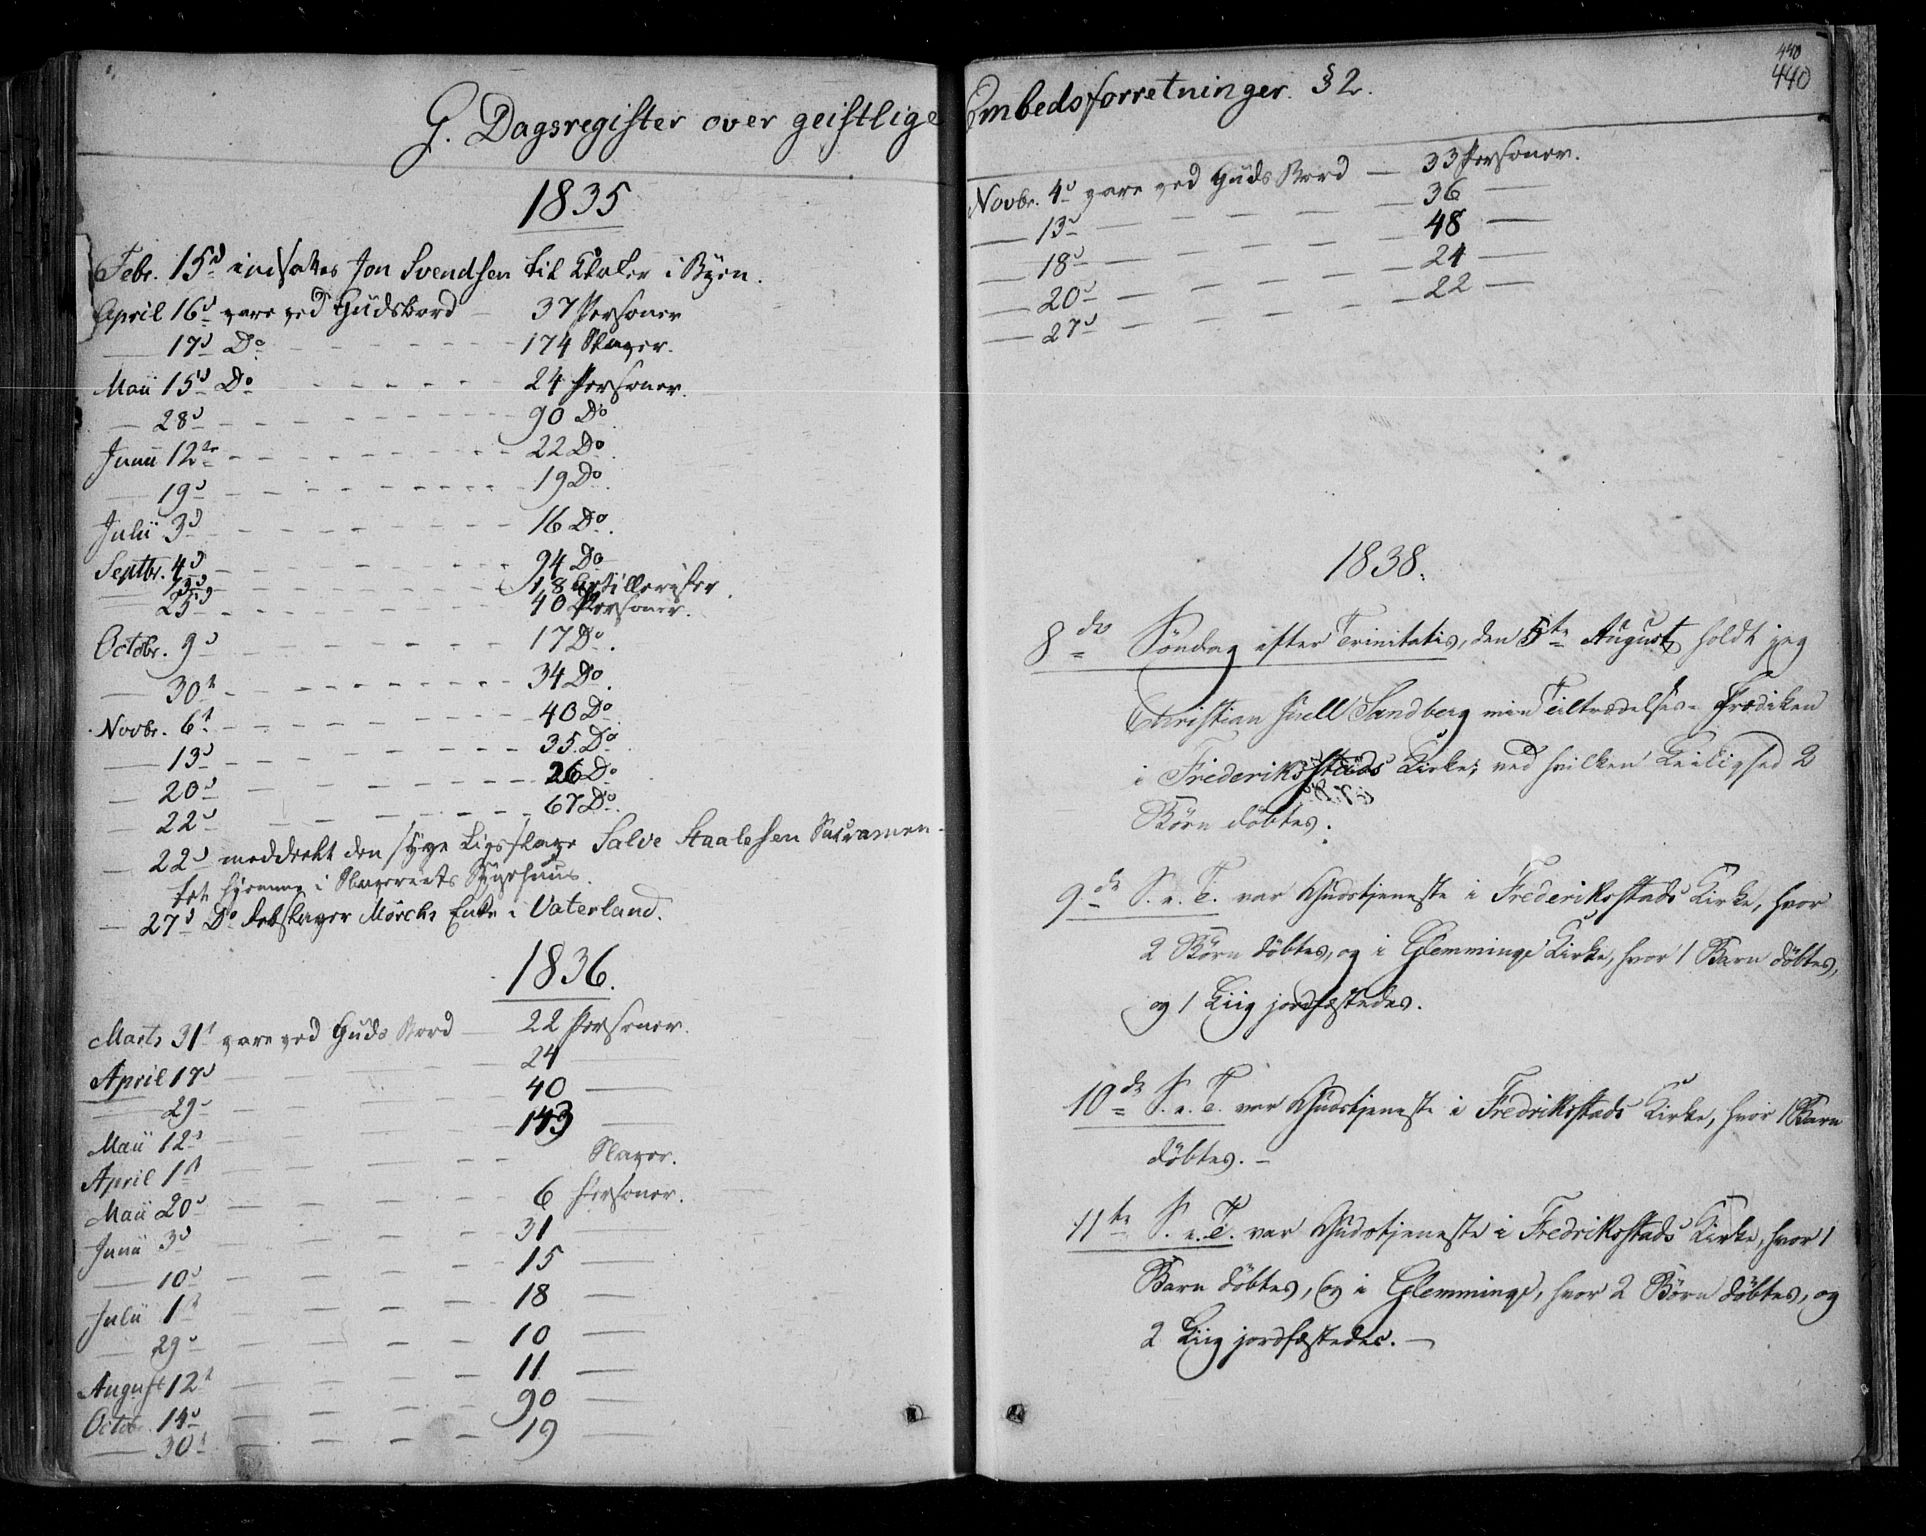 G. Dagsregister over geistlige Embedsforretninger. §2.
440
440
1835
Febr. 15d indsattes Jon Svendsen til Kloker i Byen.
April 16d vare ved Gudsbord 37 Personer
— 17d Do 174 Slaver.
Maii 15d Do 24 Personer.
— 28d 90 Do
Junii 12te 22 Do
— 19d 19 Do
Julii 3d 16 Do
Septbr. 4d 94 Do
— 13d 18 Artillerister.
25d 40 Personer.
Octobr. 9d 17 Do
— 30t 34 Do
Novbr. 6t 40 Do
— 13d 35 Do
— 20d 26 Do
— 22d 67 Do
— 22d meddeelt den syge Livsslave Salve Staalesen Sacramen-
tet hjemme i Slaveriets Sygehuus.
— 27d Do Enke i Vaterland.
1836.
Marts 31t vare ved Guds Bord 22 Personer.
April 17d 24 —
— 29d 40 —
Maii 12d 143 —
April 1st Slaver.
Maii 20d 6 Personer.
Junii 3d 31 —
— 10d 15 —
Julii 1st 18 —
— 29d 10 —
August 12t 11 —
Octobr. 14d 90 —
— 30t 19 —
Novbr. 4d vare ved Guds Bord — 33 Personer.
— 13d 36 —
— 18d 48 —
— 20d 24 —
— 27d 22 —
1838.
8de Søndag efter Trinitatis, den 5te August, holdt jeg
Christian Juell Sandberg min Tiltrædelses-Prædiken
i Frederiksstads Kirke; ved hvilken Leilighed 2
Børn døbtes.
9de S. e. T. var Gudstjeneste i Frederiksstads Kirke, hvor
2 Børn døbtes, og i Glemminge Kirke, hvor 1 Barn døbtes,
og 1 Liig jordfæstedes.
10de S. e. T. var Gudstjeneste i Fredriksstads Kirke, hvor 1 Barn
døbtes. —
11te S. e. T. var Gudstjeneste i Fredriksstads Kirke, hvor 1
Barn døbtes, og i Glemminge, hvor 2 Børn døbtes, og
2 Liig jordfæstedes. —